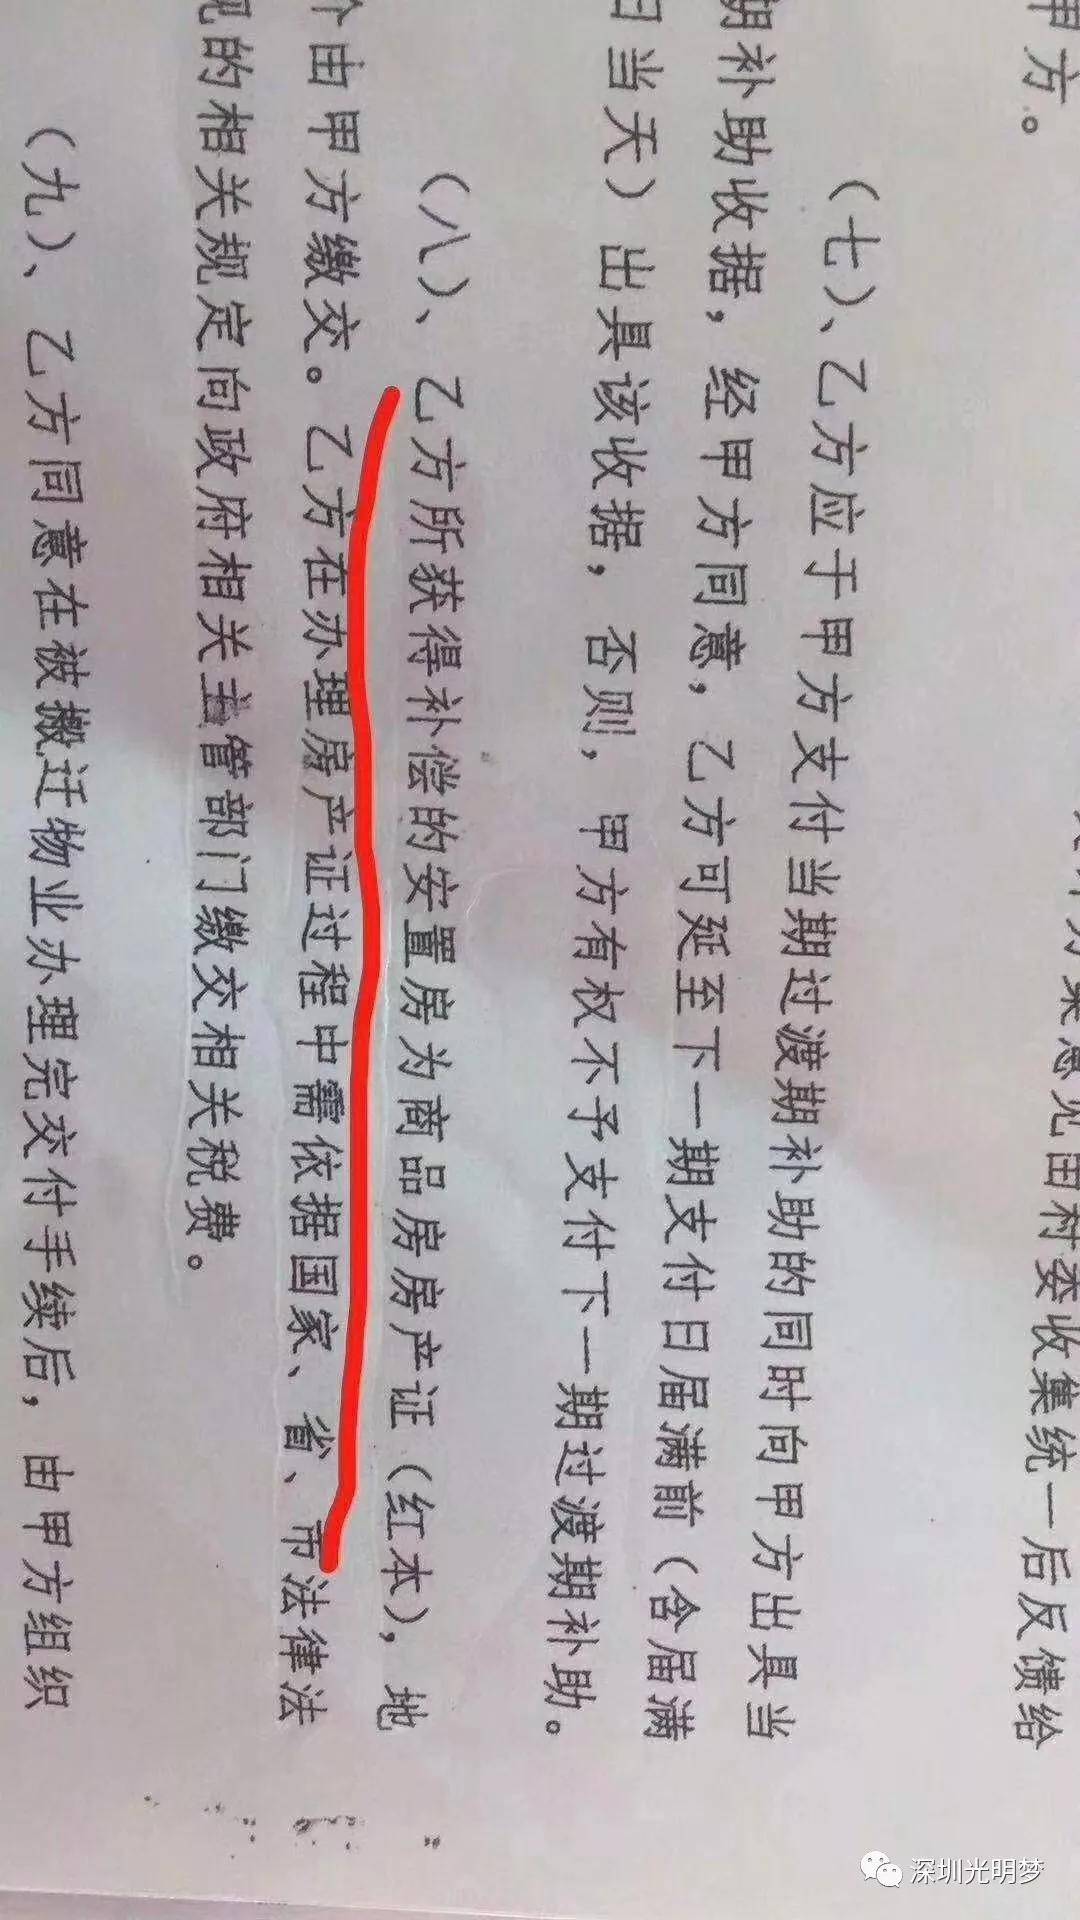 方案意见由村委收集统一后反馈给
甲方。
（七）、乙方应于甲方支付当期过渡期补助的同时向甲方出具当
期补助收据，经甲方同意，乙方可延至下一期支付日届满前（含届满
日当天）出具该收据，否则，甲方有权不予支付下一期过渡期补助。
（八）、乙方所获得补偿的安置房为商品房房产证（红本），地
由甲方缴交。乙方在办理房产证过程中需依据国家、省、市法律法
的相关规定向政府相关主管部门缴交相关税费。
（九）、乙方同意在被搬迁物业办理完交付手续后，由甲方组织
深圳光明梦